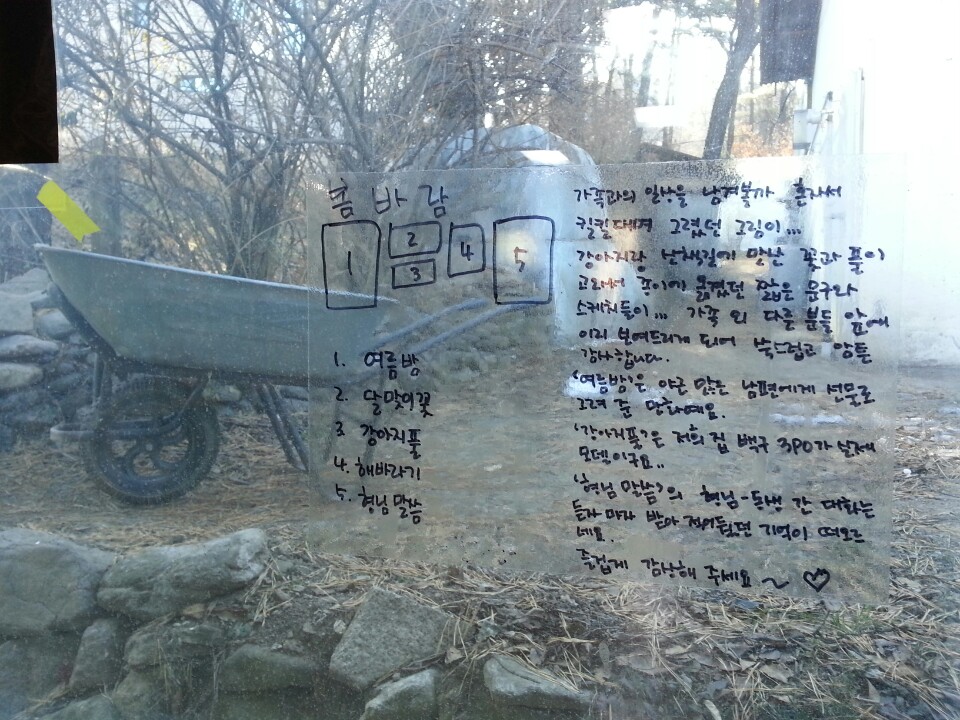 춤바람
1 2 3 4 5
1. 여름밤
2. 달맞이꽃
3. 강아지풀
4. 해바라기
5. 형님 말씀
가족과의 일상을 남겨볼까 혼자서
킬킬대며 그렸던 그림이...
강아지랑 산책길에 만난 꽃과 풀이
고와서 종이에 옮겼던 짧은 문구와
스케치들이... 가족 외 다른 분들 앞에
이리 보여드리게 되어 쑥스럽고 암튼
감사합니다.
'여름밤'은 야근 많은 남편에게 선물로
그려 준 만화예요.
'강아지풀'은 저희 집 백구 3PO가 실제
모델이구요..
'형님 말씀'의 형님-동생 간 대화는
듣자 마자 받아 적어뒀던 기억이 떠오르
네요.
즐겁게 감상해 주세요~ ♡